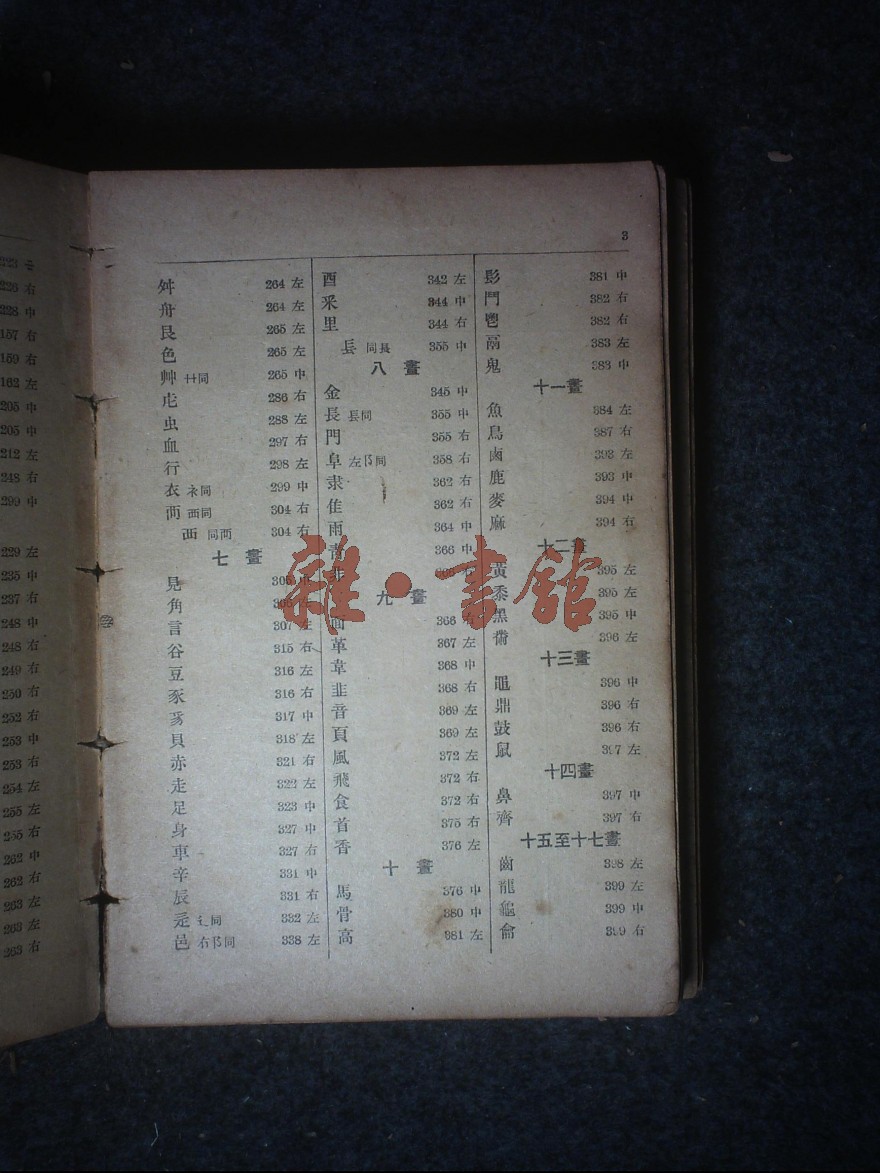 3
舛 264 左
舟 264 左
艮 265 左
色 265 左
艸 艹同 265 中
虍 286 右
虫 288 左
血 297 右
行 298 左
衣 衤同 299 中
襾 西同 304 右
西 同襾 304 右
七 畫
見 305 中
角
言 307 左
谷 315 右
豆 316 左
豕 316 右
豸 317 中
貝 318 左
赤 321 右
走 322 左
足 323 中
身 327 中
車 327 右
辛 331 中
辰 331 右
辵 辶同 332 左
邑 右阝同 338 左
酉 342 左
釆 344 中
里 344 右
镸 同長 355 中
八 畫
金 345 中
長 镸同 355 中
門 355 右
阜 左阝同 358 右
隶 362 右
隹 362 右
雨 364 中
靑 366 中
非
九 畫
面 366 右
革 367 左
韋 368 中
韭 368 右
音 369 左
頁 369 左
風 372 左
飛 372 右
食 372 右
首 375 右
香 376 左
十 畫
馬 376 中
骨 380 中
高 381 左
髟 381 中
鬥 382 右
鬯 382 右
鬲 383 左
鬼 383 中
十一畫
魚 384 左
鳥 387 右
鹵 393 左
鹿 393 中
麥 394 中
麻 394 右
十二畫
黃 395 左
黍 395 左
黑 395 中
黹 396 左
十三畫
黽 396 中
鼎 396 右
鼓 396 右
鼠 397 左
十四畫
鼻 397 中
齊 397 右
十五至十七畫
齒 398 左
龍 399 左
龜 399 中
龠 399 右
雜·書館
223 二
226 右
228 中
157 右
159 右
162 左
205 中
205 中
212 左
248 右
299 中
229 左
235 中
237 右
248 中
248 右
249 右
250 右
252 右
253 中
253 右
254 左
255 左
255 右
262 中
262 右
263 左
263 左
263 右